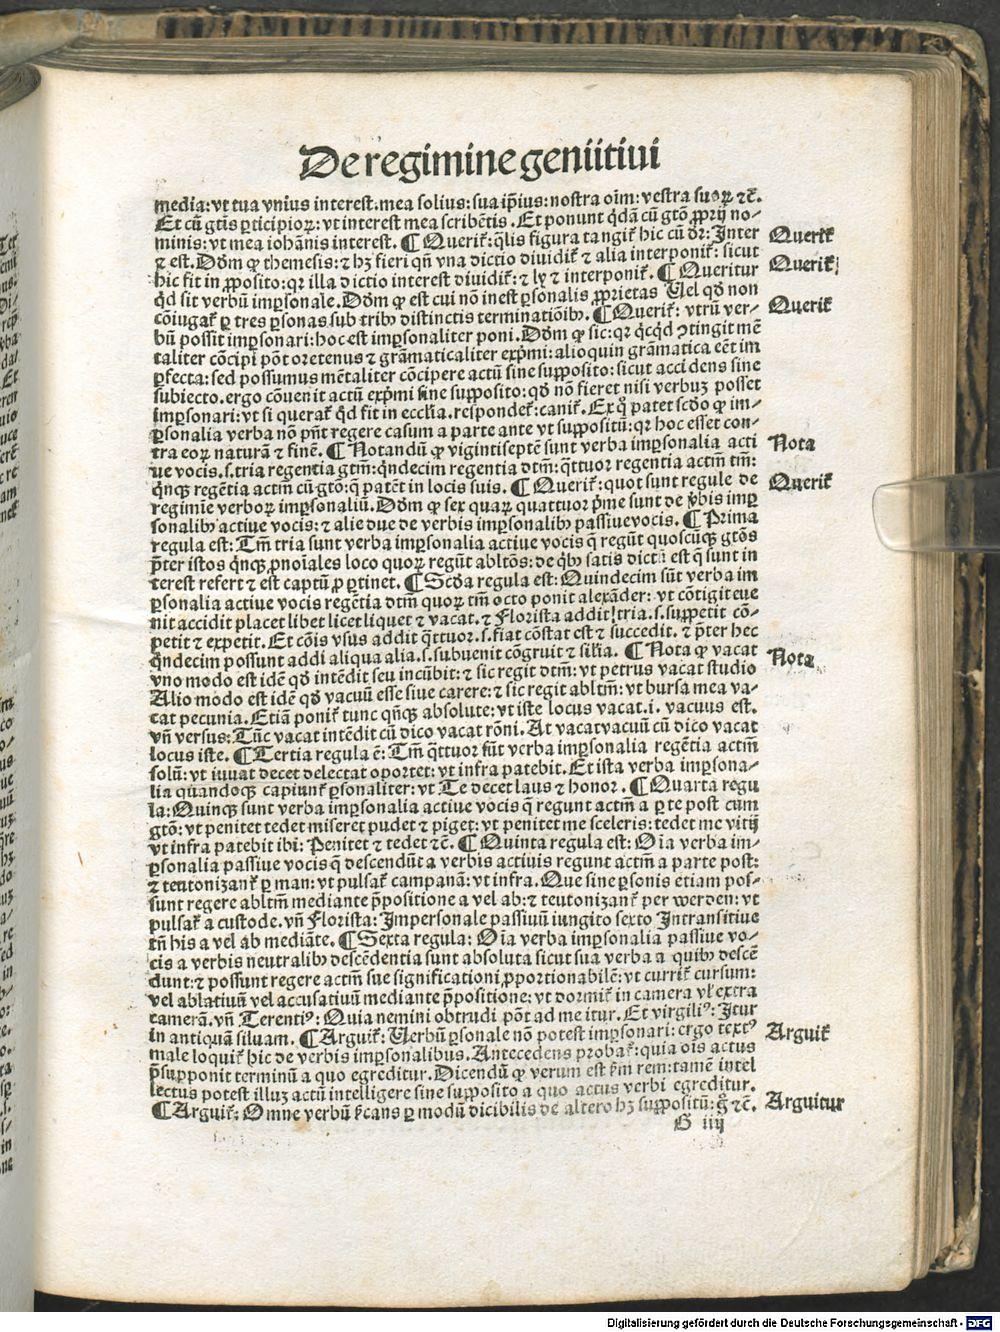 De regimine geniitiui
media: vt tua vnius interest: mea solius: sua ip̄ius: nostra oīm: vestra suoꝝ ⁊c̄.
Et cū gtīs ꝑticipioꝝ: vt interest mea scribētis. Et ponunt q̄dā cū gtō ꝓprij no-
minis: vt mea iohānis interest. ¶ Querit̄: q̄lis figura tangit̄ hic cū dr̄: Inter
⁊ est. Dōm ꝙ themesis: ⁊ hꝫ fieri qn̄ vna dictio diuidit̄ ⁊ alia interponit̄: sicut
hic fit in ꝓposito: qꝛ illa dictio interest diuidit̄: ⁊ lꝫ ⁊ interponit̄. ¶ Queritur
qd̄ sit verbū imꝑsonale. Dōm ꝙ est cui nō inest ꝑsonalis ꝓprietas Uel qd̄ non
cōiugat̄ ꝑ tres ꝑsonas sub tribꝰ distinctis terminatiōibꝰ. ¶ Querit̄: vtrū ver-
bū possit imꝑsonari: hoc est imꝑsonaliter poni. Dōm ꝙ sic: qꝛ qͥcqͥd ↄtingit mē
taliter cōcipi pōt oretenus ⁊ grāmaticaliter exp̄mi: alioquin grāmatica eēt im
ꝑfecta: sed possumus mētaliter cōcipere actū sine supposito: sicut accidens sine
subiecto. ergo cōuenit actū exp̄mi sine supposito: qd̄ nō fieret nisi verbuꝫ posset
imꝑsonari: vt si querat̄ qd̄ fit in eccl̄ia. respondet̄: canit̄. Ex qͦ patet scd̄o ꝙ im-
ꝑsonalia verba nō pn̄t regere casum a parte ante vt suppositū: qꝛ hoc esset con-
tra eoꝝ naturā ⁊ finē. ¶ Notandū ꝙ vigintiseptē sunt verba imꝑsonalia acti
ue vocis. s. tria regentia gtm̄: qͥndecim regentia dtm̄: qͣttuor regentia actm̄ tm̄:
qͥnqꝫ regētia actm̄ cū gtō: q̄ patēt in locis suis. ¶ Querit̄: quot sunt regule de
regimie verboꝝ imꝑsonaliū. Dōm ꝙ sex quaꝝ quattuor p̄me sunt de v̄bis imꝑ
sonalibꝰ actiue vocis: ⁊ alie due de verbis imꝑsonalibꝰ passiue vocis. ¶ Prima
regula est: Tm̄ tria sunt verba imꝑsonalia actiue vocis q̄ regūt quoscūqꝫ gtōs
p̄ter istos qͥnqꝫ ꝓnoīales loco quoꝝ regūt abltōs: de qͥbꝰ satis dictū est q̄ sunt in
terest refert ⁊ est captū ꝓ ꝑtinet. ¶ Scd̄a regula est: Quindecim sūt verba im
ꝑsonalia actiue vocis regētia dtm̄ quoꝝ tm̄ octo ponit alexāder: vt cōtigit eue
nit accidit placet libet licet liquet ⁊ vacat. ⁊ Florista addit tria. s. suppetit cō-
petit ⁊ expetit. Et cōis vsus addit qͣttuor. s. fiat cōstat est ⁊ succedit. ⁊ p̄ter hec
qͥndecim possunt addi aliqua alia. s. subuenit cōgruit ⁊ sil̄ia. ¶ Nota ꝙ vacat
vno modo est idē qd̄ intēdit seu incūbit: ⁊ sic regit dtm̄: vt petrus vacat studio
Alio modo est idē qd̄ vacuū esse siue carere: ⁊ sic regit abltm̄: vt bursa mea va-
cat pecunia. Etiā ponit̄ tunc qn̄qꝫ absolute: vt iste locus vacat. i. vacuus est.
vn̄ versus: Tūc vacat intēdit cū dico vacat rōni. At vacat vacuū cū dico vacat
locus iste. ¶ Tertia regula ē: Tm̄ qͣttuor sūt verba imꝑsonalia regētia actm̄
solū: vt iuuat decet delectat oportet: vt infra patebit. Et ista verba imꝑsona-
lia quandoqꝫ capiunt̄ ꝑsonaliter: vt Te decet laus ⁊ honor. ¶ Quarta regu
la: Quinqꝫ sunt verba imꝑsonalia actiue vocis q̄ regunt actm̄ a ꝑte post cum
gtō: vt penitet tedet miseret pudet ⁊ piget: vt penitet me sceleris: tedet me vitij
vt infra patebit ibi: Penitet ⁊ tedet ⁊c̄. ¶ Quinta regula est: Oīa verba im-
ꝑsonalia passiue vocis q̄ descendūt a verbis actiuis regunt actm̄ a parte post:
⁊ teutonizant̄ ꝑ man: vt pulsat̄ campanā: vt infra. Que sine ꝑsonis etiam pos-
sunt regere abltm̄ mediante p̄positione a vel ab: ⁊ teutonizant̄ per werden: vt
pulsat̄ a custode. vn̄ Florista: Impersonale passiuū iungito sexto Intransitiue
tn̄ his a vel ab mediāte. ¶ Sexta regula: Oīa verba imꝑsonalia passiue vo-
cis a verbis neutralibꝰ descēdentia sunt absoluta sicut sua verba a quibꝰ descē
dunt: ⁊ possunt regere actm̄ sue significationi ꝓportionabilē: vt currit̄ cursum:
vel ablatiuū vel accusatiuū mediante p̄positione: vt dormit̄ in camera vl̓ extra
camerā. vn̄ Terentiꝰ: Quia nemini obtrudi pōt ad me itur. Et virgiliꝰ: Itur
in antiquā siluam. ¶ Arguit̄: Uerbū ꝑsonale nō potest imꝑsonari: ergo textꝰ
male loquit̄ hic de verbis imꝑsonalibus. Antecedens probat̄: quia oīs actus
p̄supponit terminū a quo egreditur. Dicendū ꝙ verum est s̄m rem: tamē intel
lectus potest illuꝫ actū intelligere sine supposito a quo actus verbi egreditur.
¶ Arguit̄: Omne verbū s̄cans ꝑ modū dicibilis de altero hꝫ suppositū: gͦ ⁊c̄.
G iiij
Querit̄
Querit̄
Querit̄
Nota
Querit̄
Nota
Arguit̄
Arguitur
Digitalisierung gefördert durch die Deutsche Forschungsgemeinschaft - DFG